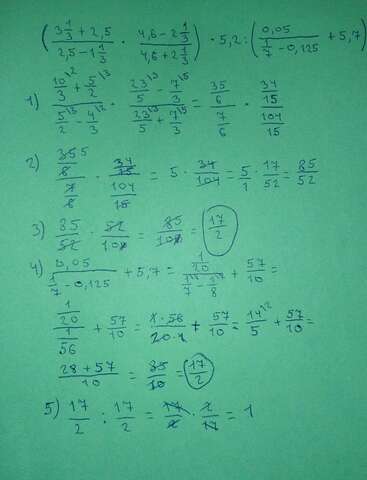 (3 1/3 + 2,5 / 2,5 - 1 1/3 · 4,6 - 2 1/3 / 4,6 + 2 1/3) · 5,2 : (0,05 / 1/7 - 0,125 + 5,7)
1) 10/3 \2 + 5/2 \3 / 5/2 \3 - 4/3 \2 · 23/5 \3 - 7/3 \5 / 23/5 \3 + 7/3 \5 = 35/6 / 7/6 · 34/15 / 104/15
2) 35 5/6 / 7/6 · 34/15 / 104/15 = 5 · 34/104 = 5/1 · 17/52 = 85/52
3) 85/52 · 52/10 = 85/10 = 17/2
4) 0,05 / 1/7 - 0,125 + 5,7 = 1/20 / 1/7 - 1/8 + 57/10 =
1/20 / 1/56 + 57/10 = 1·56/20·1 + 57/10 = 14/5 \2 + 57/10 =
28+57/10 = 85/10 = 17/2
5) 17/2 : 17/2 = 17/2 · 2/17 = 1